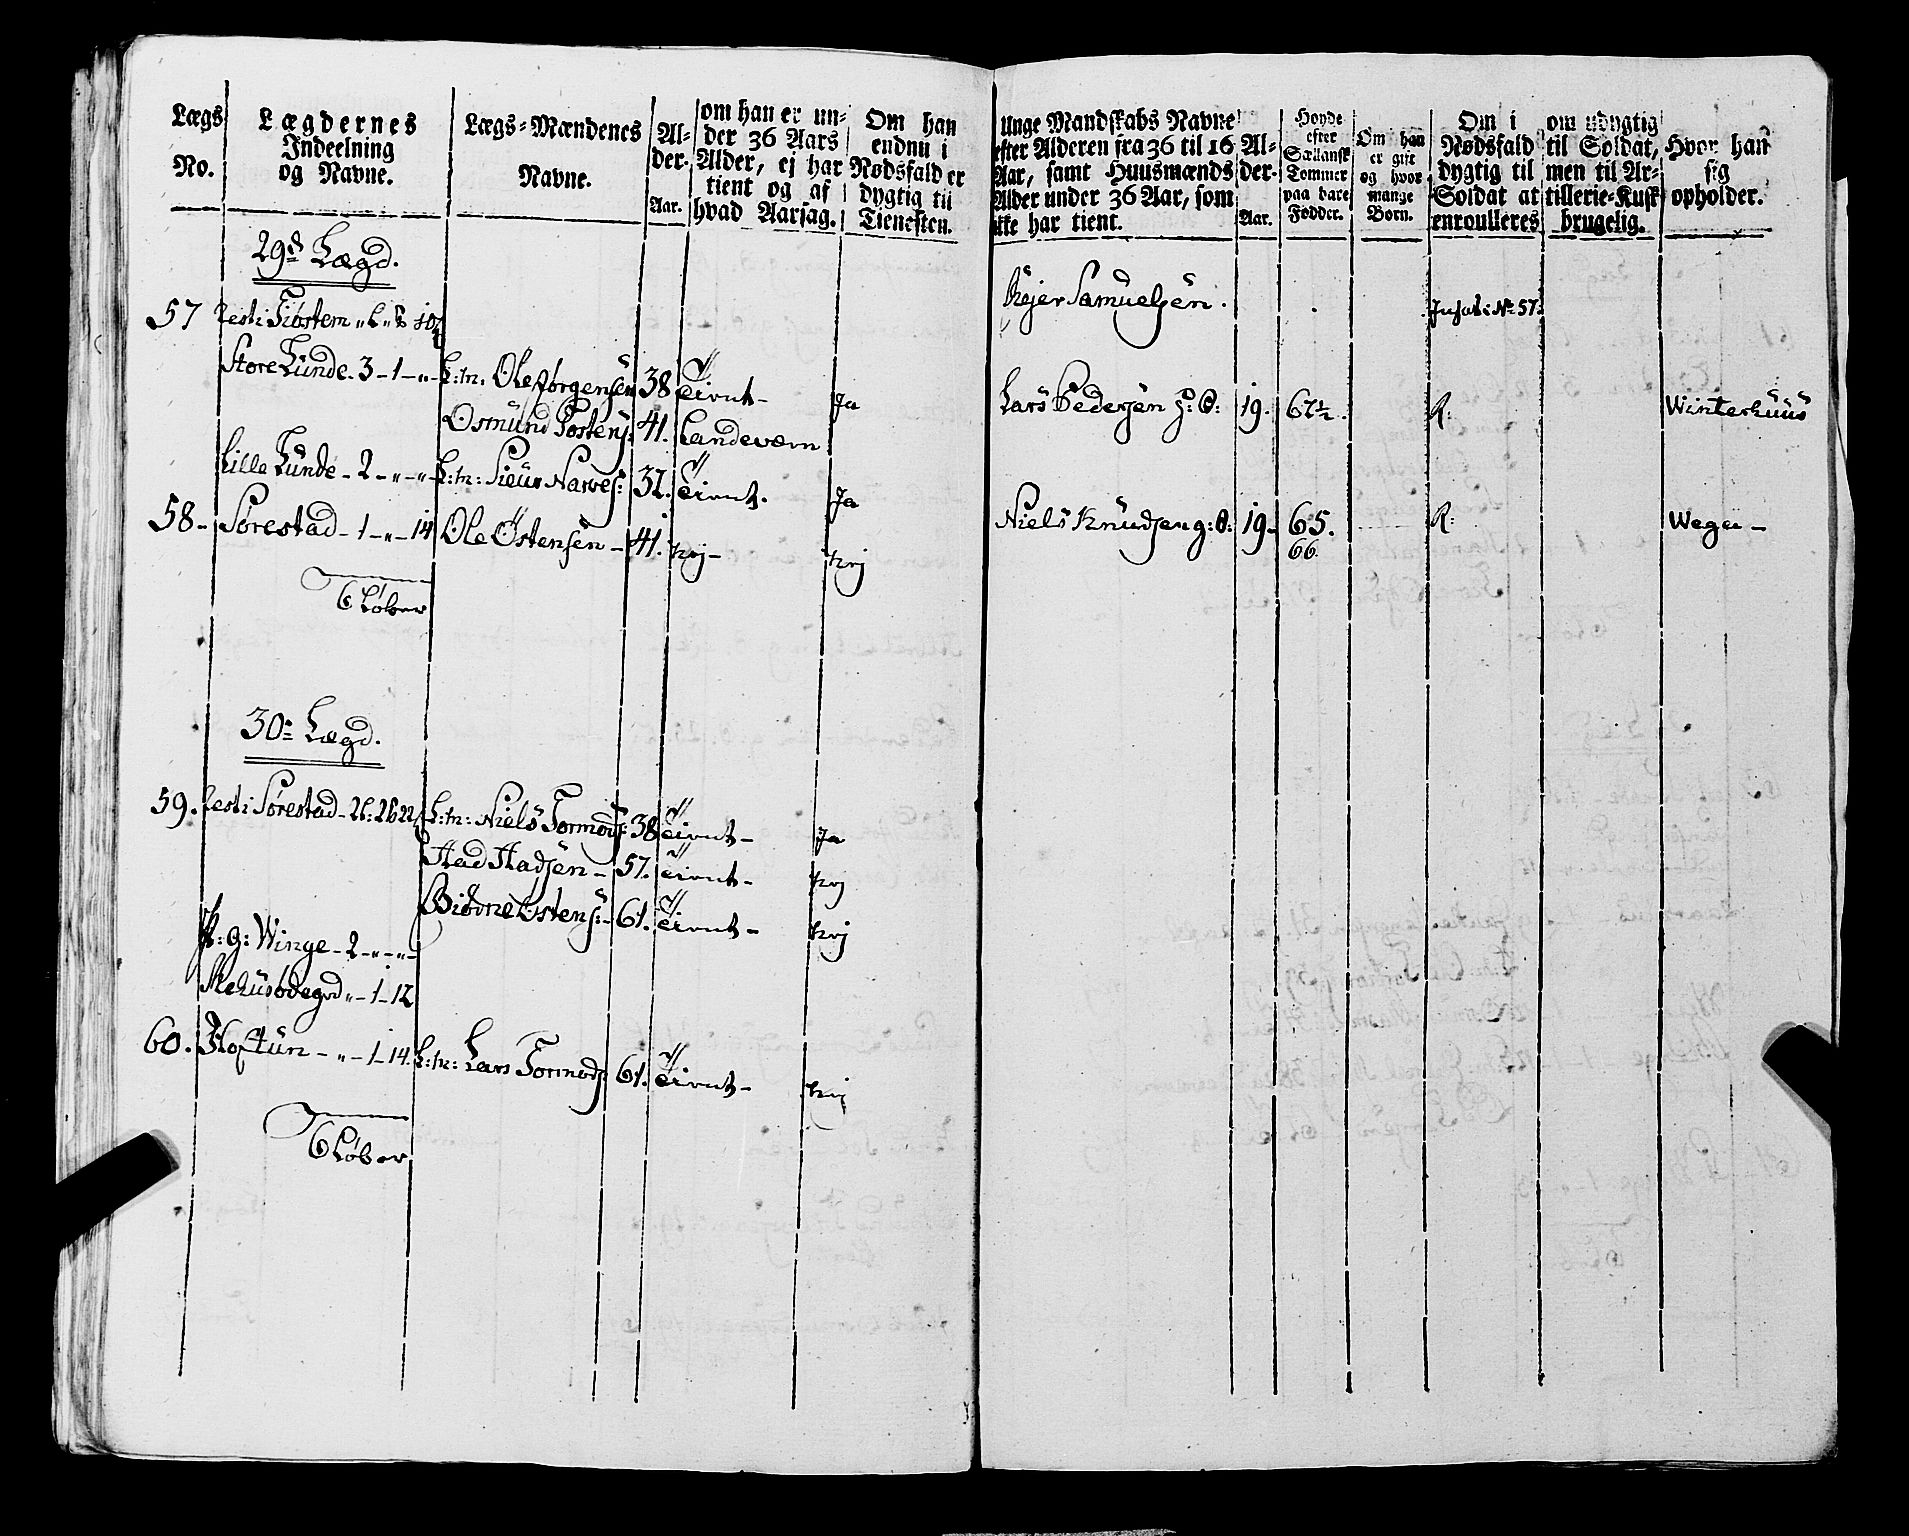 Lægs No.
Lægdernes Indeelning og Navne.
Lægs-Mændenes Navne.
Alder. Aar.
om han er under 36 Aars Alder, ej har tient og af hvad Aarsag.
Om han endnu i Nødsfald er dygtig til Tienesten.
Unge Mandskabs Navne efter Alderen fra 36 til 16 Aar, samt Huusmænds Alder under 36 Aar, som ikke har tient.
Alder. Aar.
Høyde efter Sællansk Tommer paa bare Fødder.
Om han er gift og hvor mange Børn.
Om i Nødsfald dygtig til Soldat at enroulleres
om udygtig til Soldat, men til Artillerie-Kusk brugelig.
Hvor han sig opholder.
29d Lægd.
57 Resti Tiøstem
Rejer Samuelsen. No 57.
Store Lunde - 3 - 1 - „ - L:m: Ole Jørgensen 38 Tient - Ja
Lars Pedersen 19. 67½. R: Winterhuus
Osmund Tostens: 41. Landeværn
Lille Lunde - 2 - „ - „ - L:m: Sieur Narves: 37. Tient. Ja
58 - Sørestad - 1 - „ - 14 Ole Østensen - 41. Nej - Nej
Niels Knudsen g: G: 19 - 65. R: Wegu -
66.
6 Løber
30te Lægd.
59. Resti Sørestad - L:m: Niels Tormods: 38 Tient - Ja
Aad Aadsen - 57. Tient - Nej
Biørne Østens: - 61. Tient - Nej
P: g: Winge - 2 - „ - „ -
Mehuus ødegrd „ - 1 - 12
60. Hoftun - „ - 1 - 14. L:m: Lars Tormods: 61. Tient - Nej
6 Løber